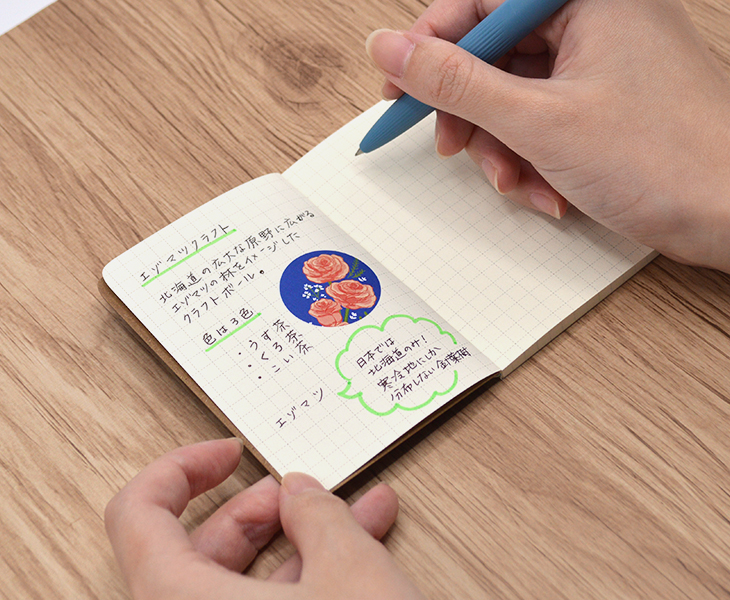 エゾマツクラフト
北海道の広大な原野に広がる
エゾマツの林をイメージした
クラフトボール。
色は3色
・うす茶
・くろ茶
・こい茶
エゾマツ
日本では
北海道のみ！
寒冷地にしか
分布しない針葉樹